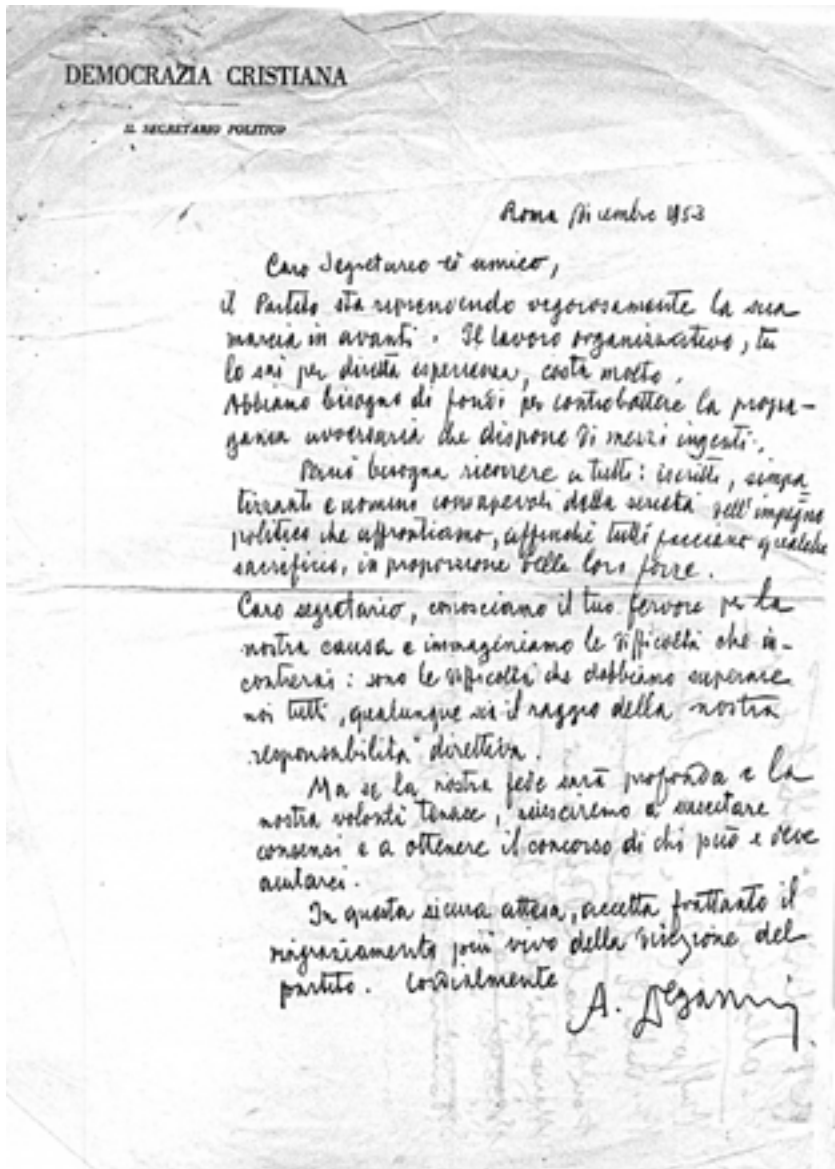 DEMOCRAZIA CRISTIANA
IL SEGRETARIO POLITICO
Roma Dicembre 1953
Caro Segretario ed amico,
il Partito sta riprendendo vigorosamente la sua
marcia in avanti. Il lavoro organizzativo, tu
lo sai per diretta esperienza, costa molto.
Abbiamo bisogno di fondi per controbattere la propa-
ganda avversaria che dispone di mezzi ingenti.
Perciò bisogna ricorrere a tutti: iscritti, simpa
tizzanti e uomini consapevoli della serietà dell'impegno
politico che affrontiamo, affinché tutti facciano qualche
sacrificio, in proporzione delle loro forze.
Caro segretario, conosciamo il tuo fervore per la
nostra causa e immaginiamo le difficoltà che in-
contrerai: sono le difficoltà che dobbiamo superare
noi tutti, qualunque sia il raggio della nostra
responsabilità direttiva.
Ma se la nostra fede sarà profonda e la
nostra volontà tenace, riusciremo a suscitare
consensi e a ottenere il concorso di chi può e deve
aiutarci.
In questa sicura attesa, accetta frattanto il
ringraziamento più vivo della direzione del
partito. Cordialmente
A. Degasperi